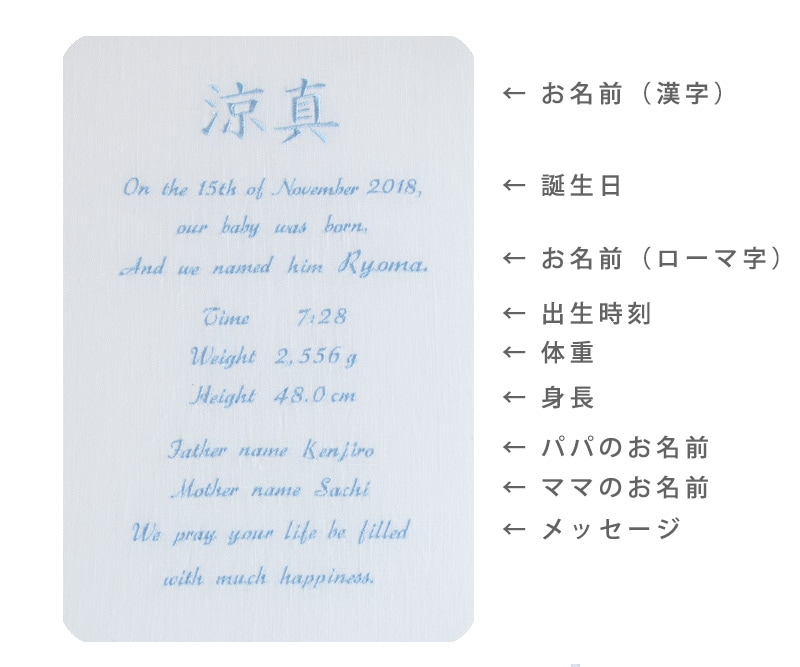 涼真
← お名前（漢字）
On the 15th of November 2018,
← 誕生日
our baby was born.
And we named him Ryoma.
← お名前（ローマ字）
Time 7:28
← 出生時刻
Weight 2,556 g
← 体重
Height 48.0 cm
← 身長
Father name Kenjiro
← パパのお名前
Mother name Sachi
← ママのお名前
We pray your life be filled
← メッセージ
with much happiness.